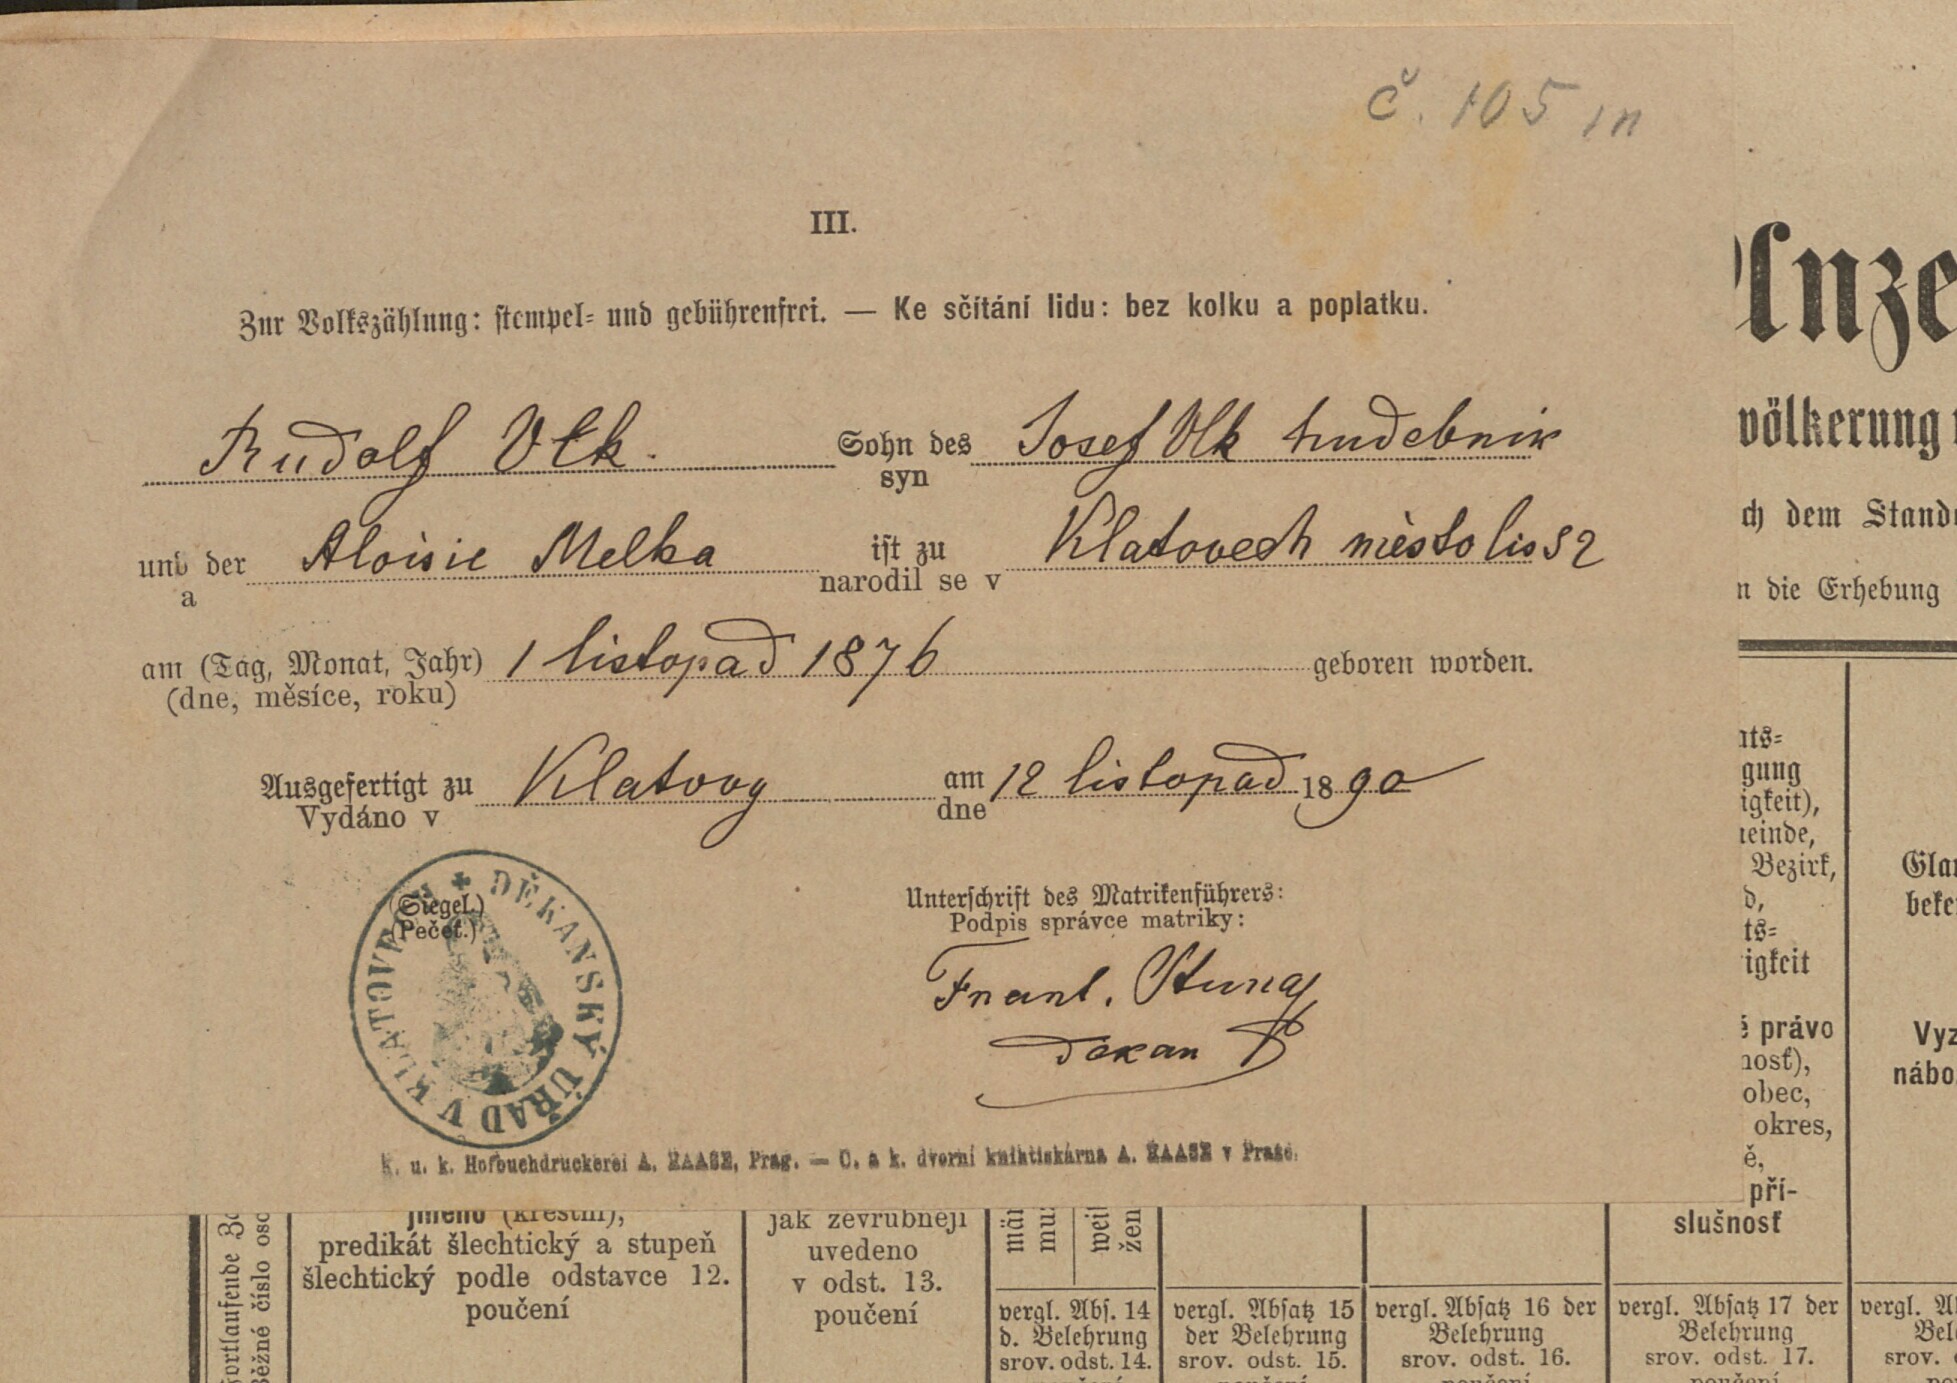 č. 105 m
III.
Zur Volkszählung: stempel- und gebührenfrei. — Ke sčítání lidu: bez kolku a poplatku.
Rudolf Vlk. Sohn des Josef Vlk hudebnik
syn
und der Aloisie Melka ist zu Klatovech město lis 52
a narodil se v
am (Tag, Monat, Jahr) 1 listopad 1876 geboren worden.
(dne, měsíce, roku)
Ausgefertigt zu Klatovy am 12 listopad 1890
Vydáno v dne
(Siegel.)
(Pečeť.)
DĚKANSKÝ ÚŘAD V KLATOVECH
Unterschrift des Matrikenführers:
Podpis správce matriky:
Frant.
Děkan
K. u. k. Hofbuchdruckerei A. HAASE, Prag. — C. a k. dvorní knihtiskárna A. HAASE v Praze.
Anze
völkerung
ch dem Stand
n die Erhebung
ats-
gung
igkeit),
einde,
Bezirk,
d,
ts-
igkeit
é právo
nosť),
obec,
okres,
ě,
pří-
slušnosť
Gla
beke
Vyz
nábo
Fortlaufende
Běžné číslo oso
jméno (křestní),
predikát šlechtický a stupeň
šlechtický podle odstavce 12.
poučení
jak zevrubněji
uvedeno
v odst. 13.
poučení
män
muž
weib
žen
vergl. Abs. 14
d. Belehrung
srov. odst. 14.
poučení
vergl. Absatz 15
der Belehrung
srov. odst. 15.
poučení
vergl. Absatz 16 der
Belehrung
srov. odst. 16.
poučení
vergl. Absatz 17 der
Belehrung
srov. odst. 17.
poučení
vergl. A
Bel
srov.